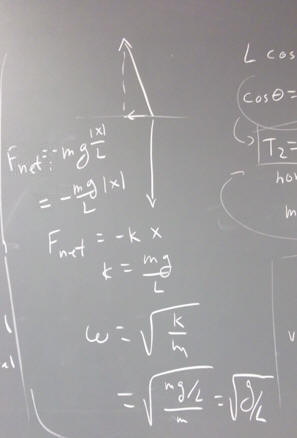 F_net = -mg |x|/L
= -mg/L |x|
F_net = -k x
k = mg/L
ω = √(k/m)
= √((mg/L)/m) = √(g/L)
L cos
cosθ=
T₂=
ho
m
v